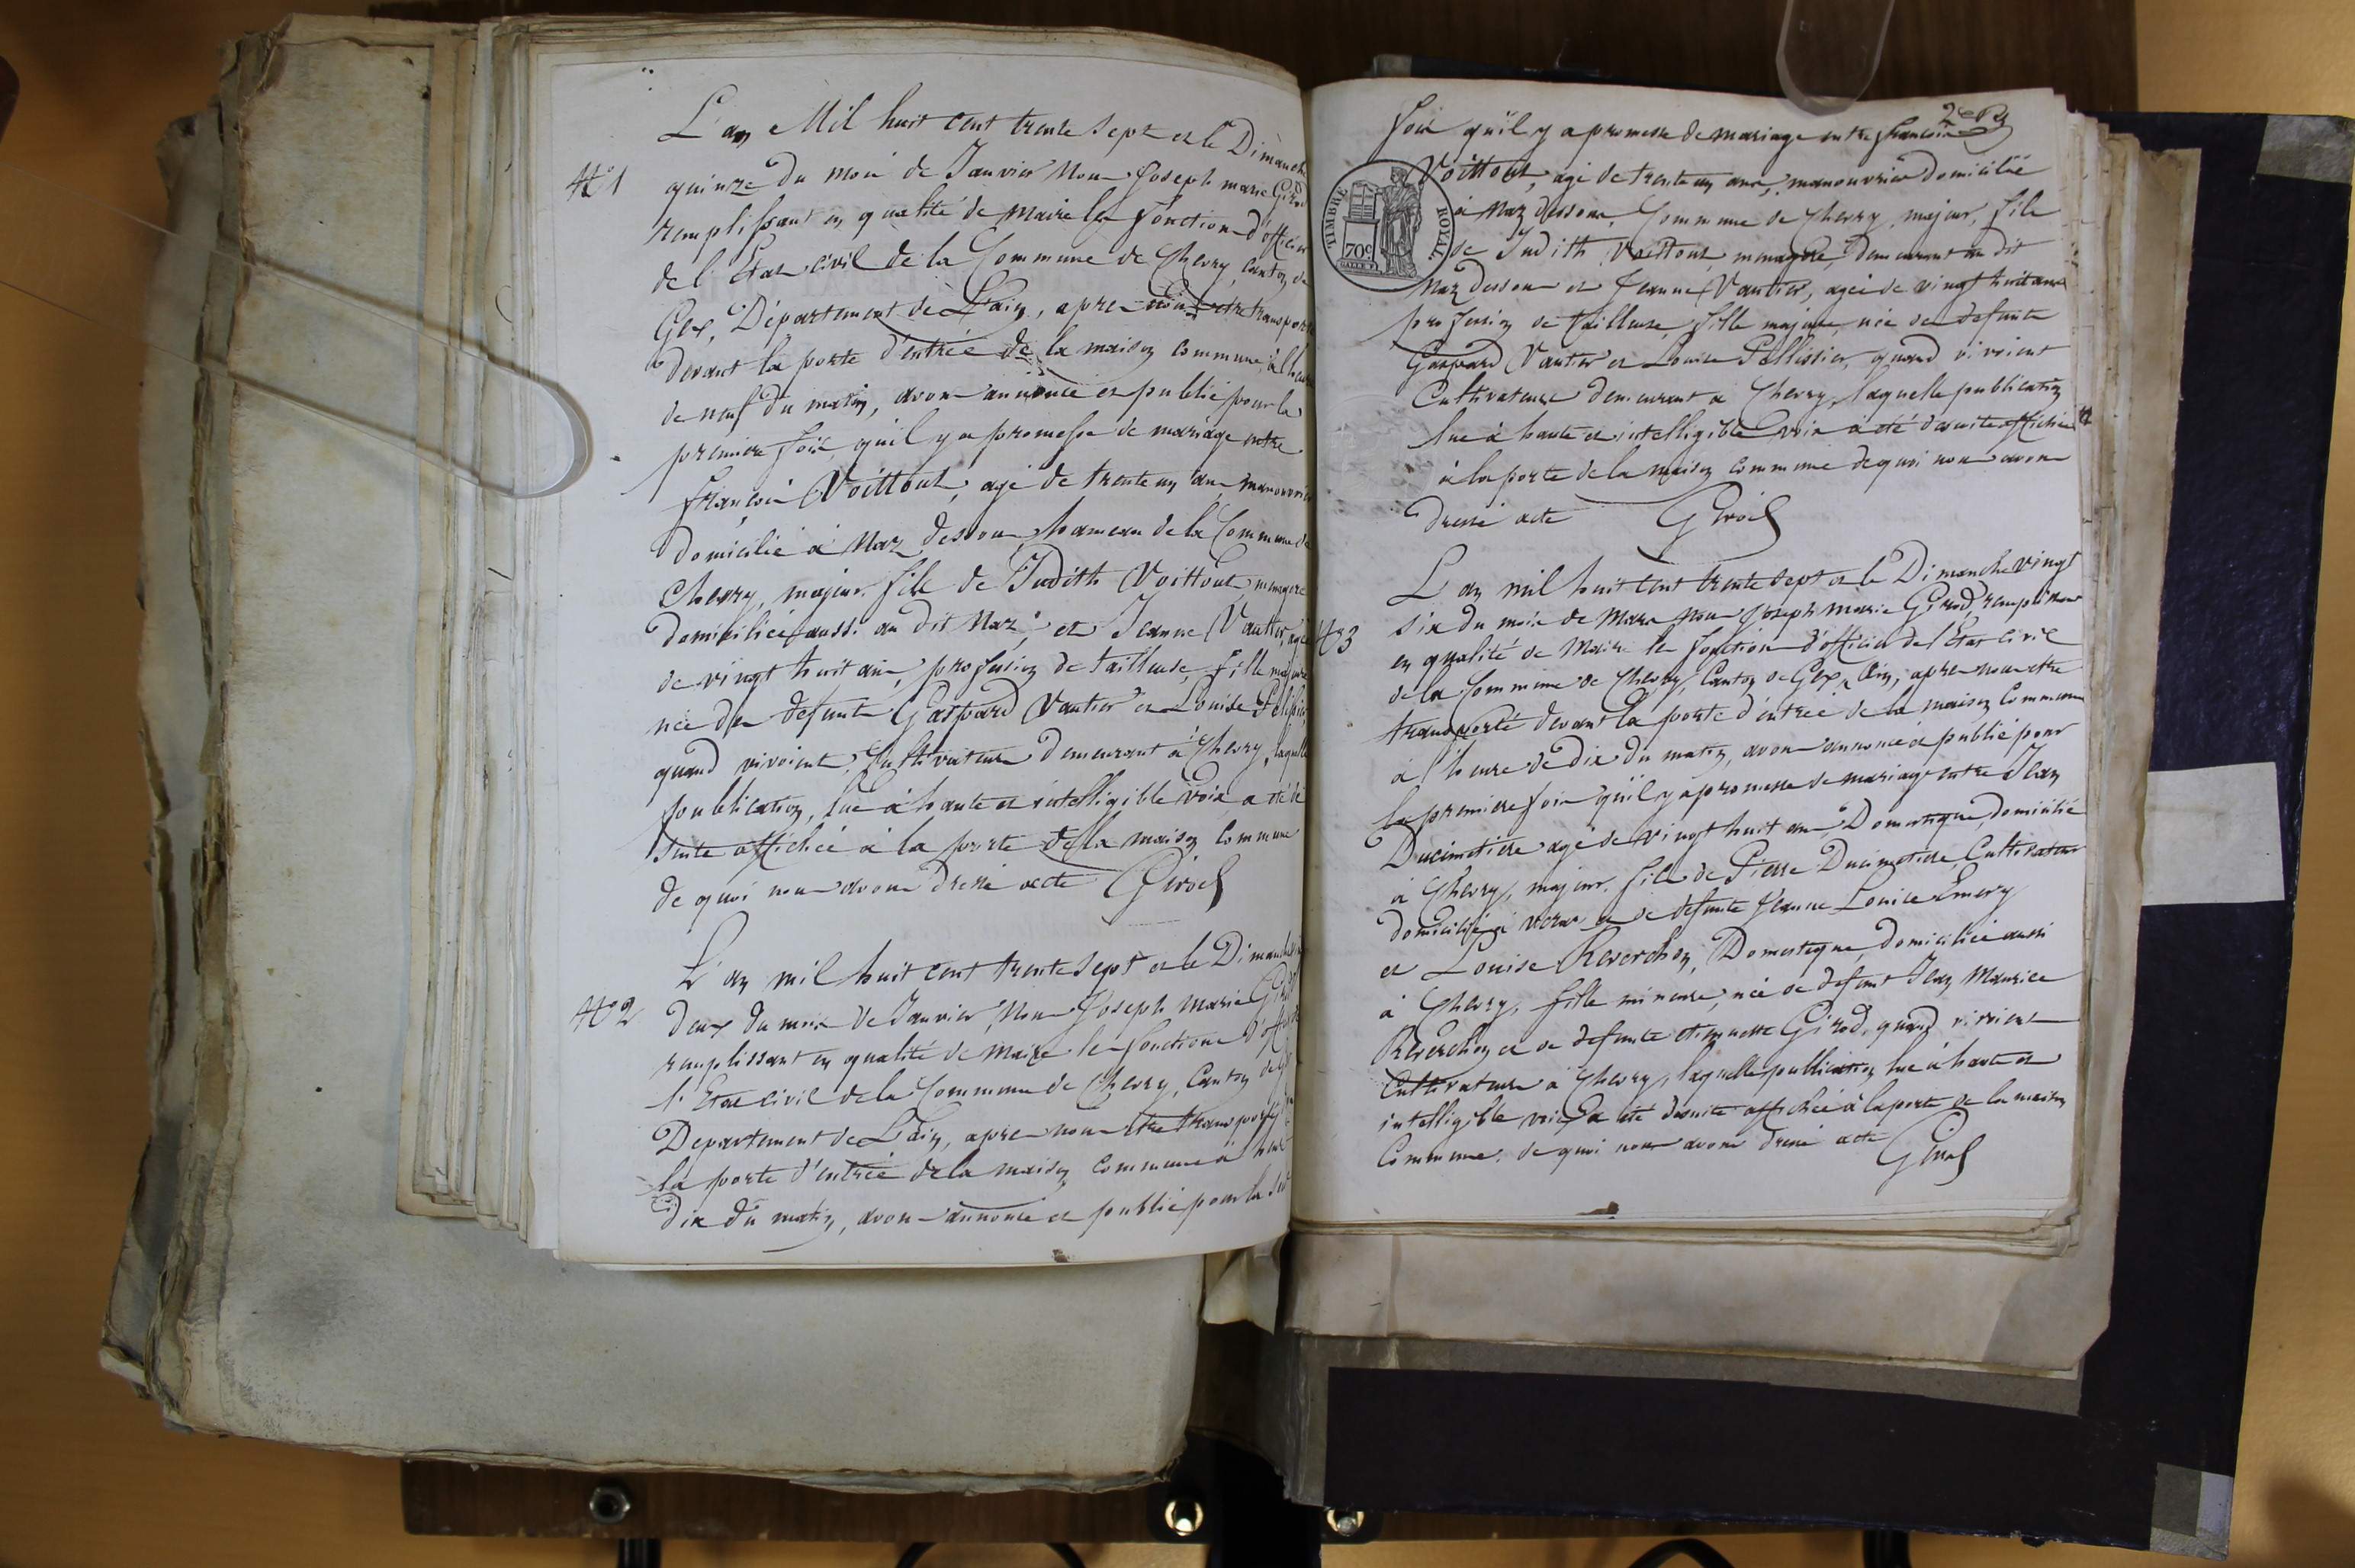 L'an Mil huit cent trente sept et le Dimanche
N° 1 quinze du mois de Janvier Nous Joseph marie Girod
remplissant en qualité de maire les fonctions d'officier
de l'Etat civil de la Commune de Chevry, canton de
Gex, Département de L'ain, apres nous etre transporté
devant la porte d'entrée de la maison commune à l'heure
de neuf du matin, avons annoncé et publié pour la
premiere fois, qu'il y a promesse de mariage entre
françois Voittout, agé de trente un ans, manouvrier
domicilié à Naz dessous hameau de la Commune de
Chevry, majeur, fils de Judith Voittout, menagere
domiciliée aussi au dit Naz; et Jeanne Vautier, agée
de vingt huit ans, profession de tailleuse, fille majeure
née des defunts Gaspard Vautier et Louise Pelissier
quand vivoient, Cultivateurs demeurant à Chevry, laquelle
publication, lue à haute et intelligible voix a été de
suite affichée à la porte de la maison Commune
de quoi nous avons dressé acte Girod
L'an mil huit cent trente sept et le Dimanche
N° 2 deux du mois de Janvier, Nous Joseph Marie Girod
remplissant en qualité de Maire les fonctions d'officier
l'Etat civil de la Commune de Chevry, Canton de
Departement de L'ain, apres nous etre transporté
la porte d'entrée de la maison commune à heure
dix du matin, avons annoncé et publié pour la
2e
fois qu'il y a promesse de mariage entre françois
Voittout, agé de trente un ans, manouvrier domicilié
à Naz dessous, Commune de Chevry, majeur, fils
de Judith Voittout, menagere, demeurant au dit
Naz dessous et Jeanne Vautier, agée de vingt huit ans
profession de tailleuse, fille majeure, née des defunts
Gaspard Vautier et Louise Pellissier, quand vivoient
Cultivateurs demeurant à Chevry, laquelle publication
lue à haute et intelligible voix a été desuite affichée
à la porte de la maison commune dequoi nous avons
dressé acte Girod
TIMBRE ROYAL
70c
L'an mil huit cent trente sept et le Dimanche vingt
six du mois de Mars nous Joseph Marie Girod, remplissant
N° 3 en qualité de Maire les fonctions d'officier de l'Etat civil
de la Commune de Chevry, Canton de Gex, Ain, apres nous etre
transporté devant la porte d'entrée de la maison Commune
à l'heure de dix du matin, avons annoncé et publié pour
la premiere fois qu'il y a promesse de mariage entre Jean
Ducimetiere agé de vingt huit ans, Domestique, domicilié
à Chevry, majeur, fils de Pierre Ducimetiere, Cultivateur
domicilié à et de defunte Jeanne Louise Emery
et Louise Reverchon, Domestique, domiciliée aussi
à Chevry, fille mineure, née de defunt Jean Maurice
Reverchon et de defunte Girod, quand vivoient
Cultivateurs à Chevry, laquelle publication lue à haute et
intelligible voix a été desuite affichée à la porte de la maison
Commune, de quoi nous avons dressé acte Girod